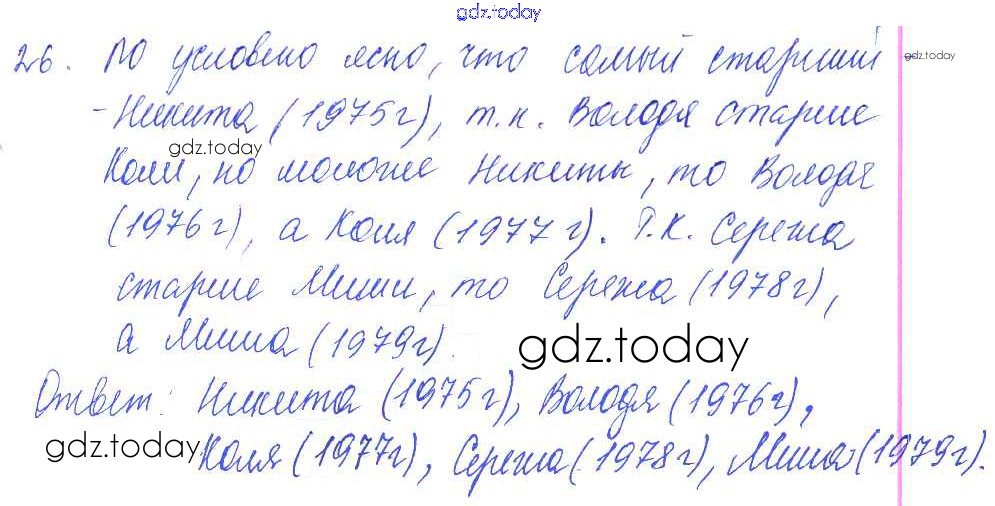 gdz.today
26. По условию ясно, что самый старший
gdz.today
- Никита (1975г), т.к. Володя старше
gdz.today
Коли, но моложе Никиты, то Володя
(1976г), а Коля (1977г). Т.К. Сережа
старше Миши, то Сережа (1978г),
а Миша (1979г).
gdz.today
Ответ: Никита (1975г), Володя (1976г),
gdz.today
Коля (1977г), Сережа (1978г), Миша (1979г).